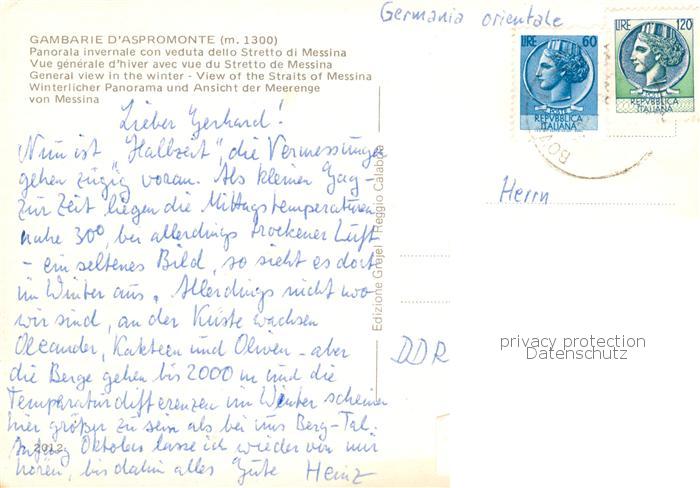 GAMBARIE D'ASPROMONTE (m. 1300)
Panorala invernale con veduta dello Stretto di Messina
Vue générale d'hiver avec vue du Stretto de Messina
General view in the winter - View of the Straits of Messina
Winterlicher Panorama und Ansicht der Meerenge
von Messina
Lieber Gerhard!
Nun ist "Halbzeit", die Vermessungen
gehen zügig voran. Als kleinen Gag -
zur Zeit liegen die Mittagstemperaturen
nahe 30°, bei allerdings trockener Luft
- ein seltenes Bild, so sieht es dort
im Winter aus. Allerdings nicht wo
wir sind, an der Küste wachsen
Oleander, Kakteen und Oliven - aber
die Berge gehen bis 2000 m und die
Temperaturdifferenzen im Winter scheinen
hier größer zu sein als bei uns Berg-Tal.
Anfang Oktober lasse ich wieder von mir
hören, bis dahin alles Gute Heinz
2012
Edizione Grajel - Reggio Calabria
Germania orientale
LIRE 60
POSTE
REPVBBLICA
ITALIANA
LIRE 120
POSTE
REPVBBLICA
ITALIANA
BOV
Herrn
DDR
privacy protection
Datenschutz